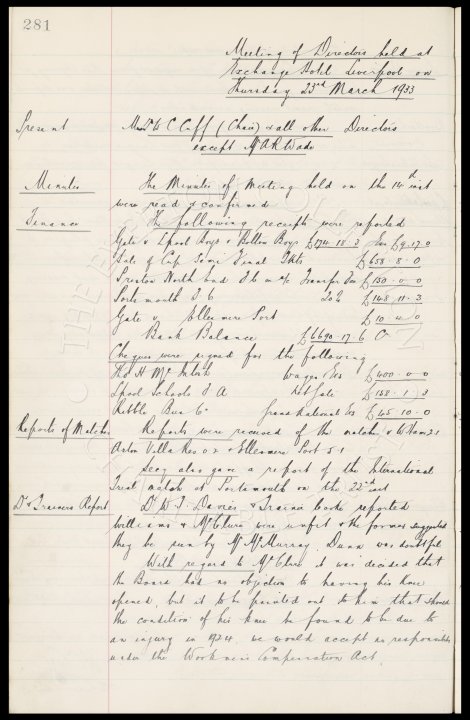 281
Meeting of Directors held at
Exchange Hotel Liverpool on
Thursday 23rd March 1933
Present Messrs W C Cuff (Chair) & all other Directors
except Mr A R Wade
Minutes The Minutes of Meeting held on the 14th inst
were read & confirmed
Finance The following receipts were reported
Gate v Lpool Boys v Bolton Boys £174 . 18 . 3 £9 . 17 . 0
Sale of Cup Semi Final Tkts £658 . 8 . 0
Preston North End F C on a/c Transfer Fee £150 . 0 . 0
Portsmouth F C £148 . 11 . 3
Gate v Ellesmere Port £10 . 4 . 0
Bank Balance £6690 . 17 . 6 Cr
Cheques were signed for the following
Thos H McIntosh Wages & Exs £400 . 0 . 0
Lpool Schools F A Gate £158 . 1 . 3
Ribble Bus Co Grand National Exs £45 . 10 . 0
Reports of Matches Reports were received of the matches v W Ham 2.1
Aston Villa Res 0.2 & Ellesmere Port 5.1
Secy also gave a report of the International
Trial match at Portsmouth on the 22nd inst
Dr & Trainers Report Dr W F Davies & Trainer Cooke reported
Williams & McClure were unfit & the former suggested
they be seen by Mr McMurray. Dunn was doubtful
With regard to McClure it was decided that
the Board had no objection to having his knee
opened, but it to be pointed out to him that should
the condition of his knee be found to be due to
an injury in 1924, we would accept no responsibility
under the Workmens Compensation Act.